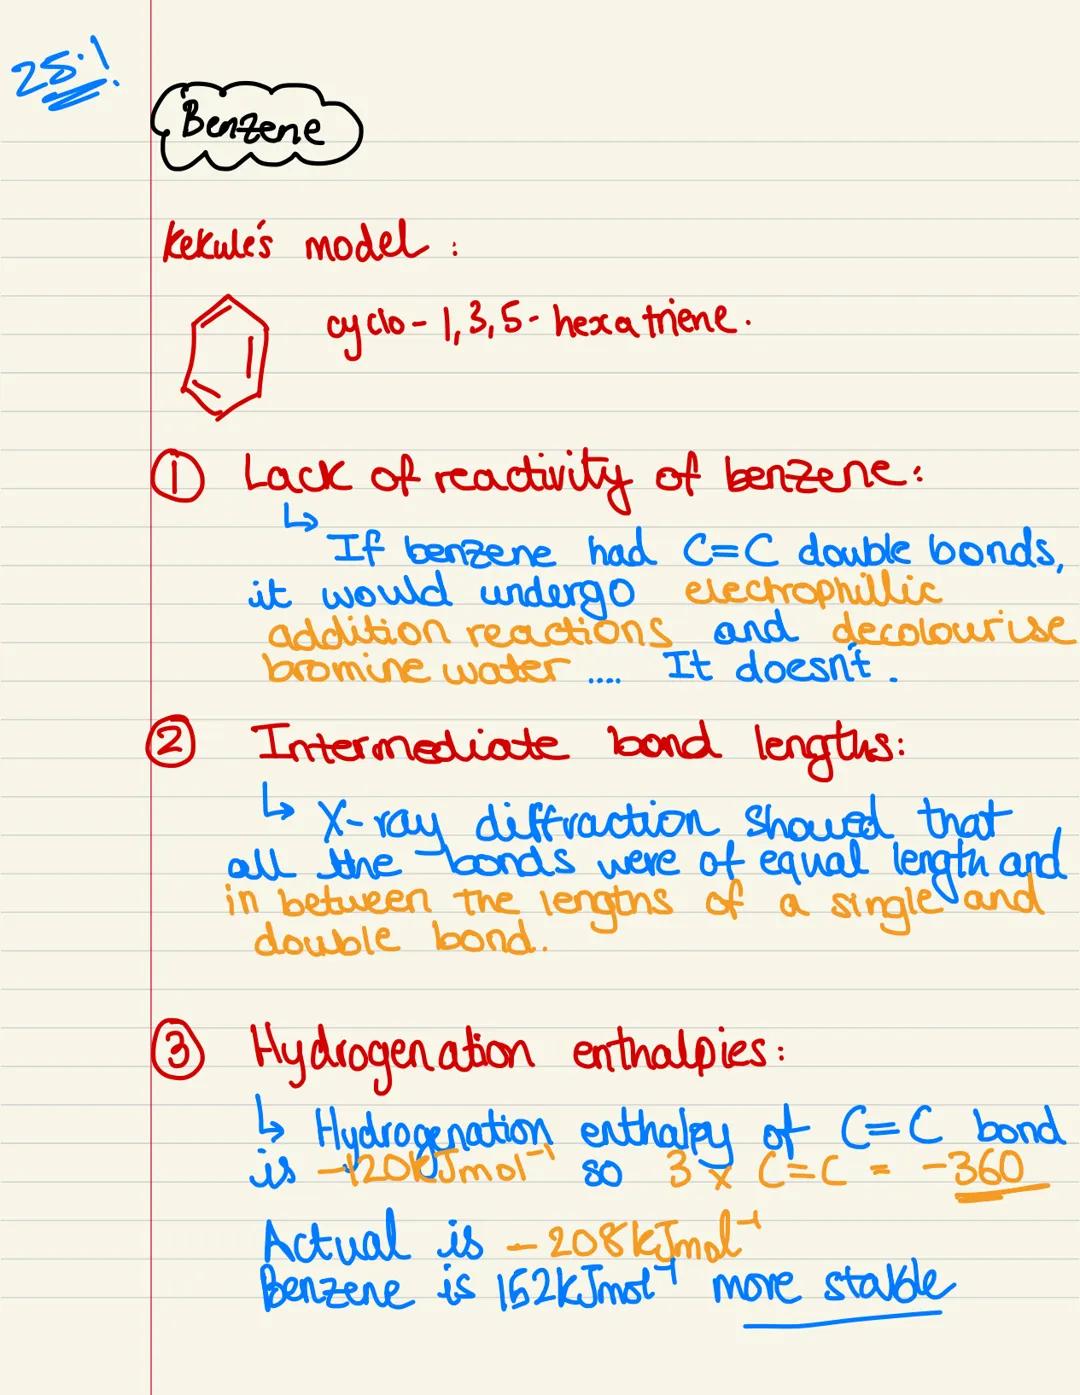 25.1
Benzene
Kekulé's model :
cyclo-1,3,5-hexatriene.
① Lack of reactivity of benzene:
↳ If benzene had C=C double bonds,
it would undergo electrophillic
addition reactions and decolourise
bromine water .... It doesn't.
② Intermediate bond lengths:
↳ X-ray diffraction showed that
all the bonds were of equal length and
in between the lengths of a single and
double bond.
③ Hydrogenation enthalpies:
↳ Hydrogenation enthalpy of C=C bond
is -120kJmol⁻¹ so 3 x C=C = -360
Actual is -208kJmol⁻¹
Benzene is 152kJmol⁻¹ more stable